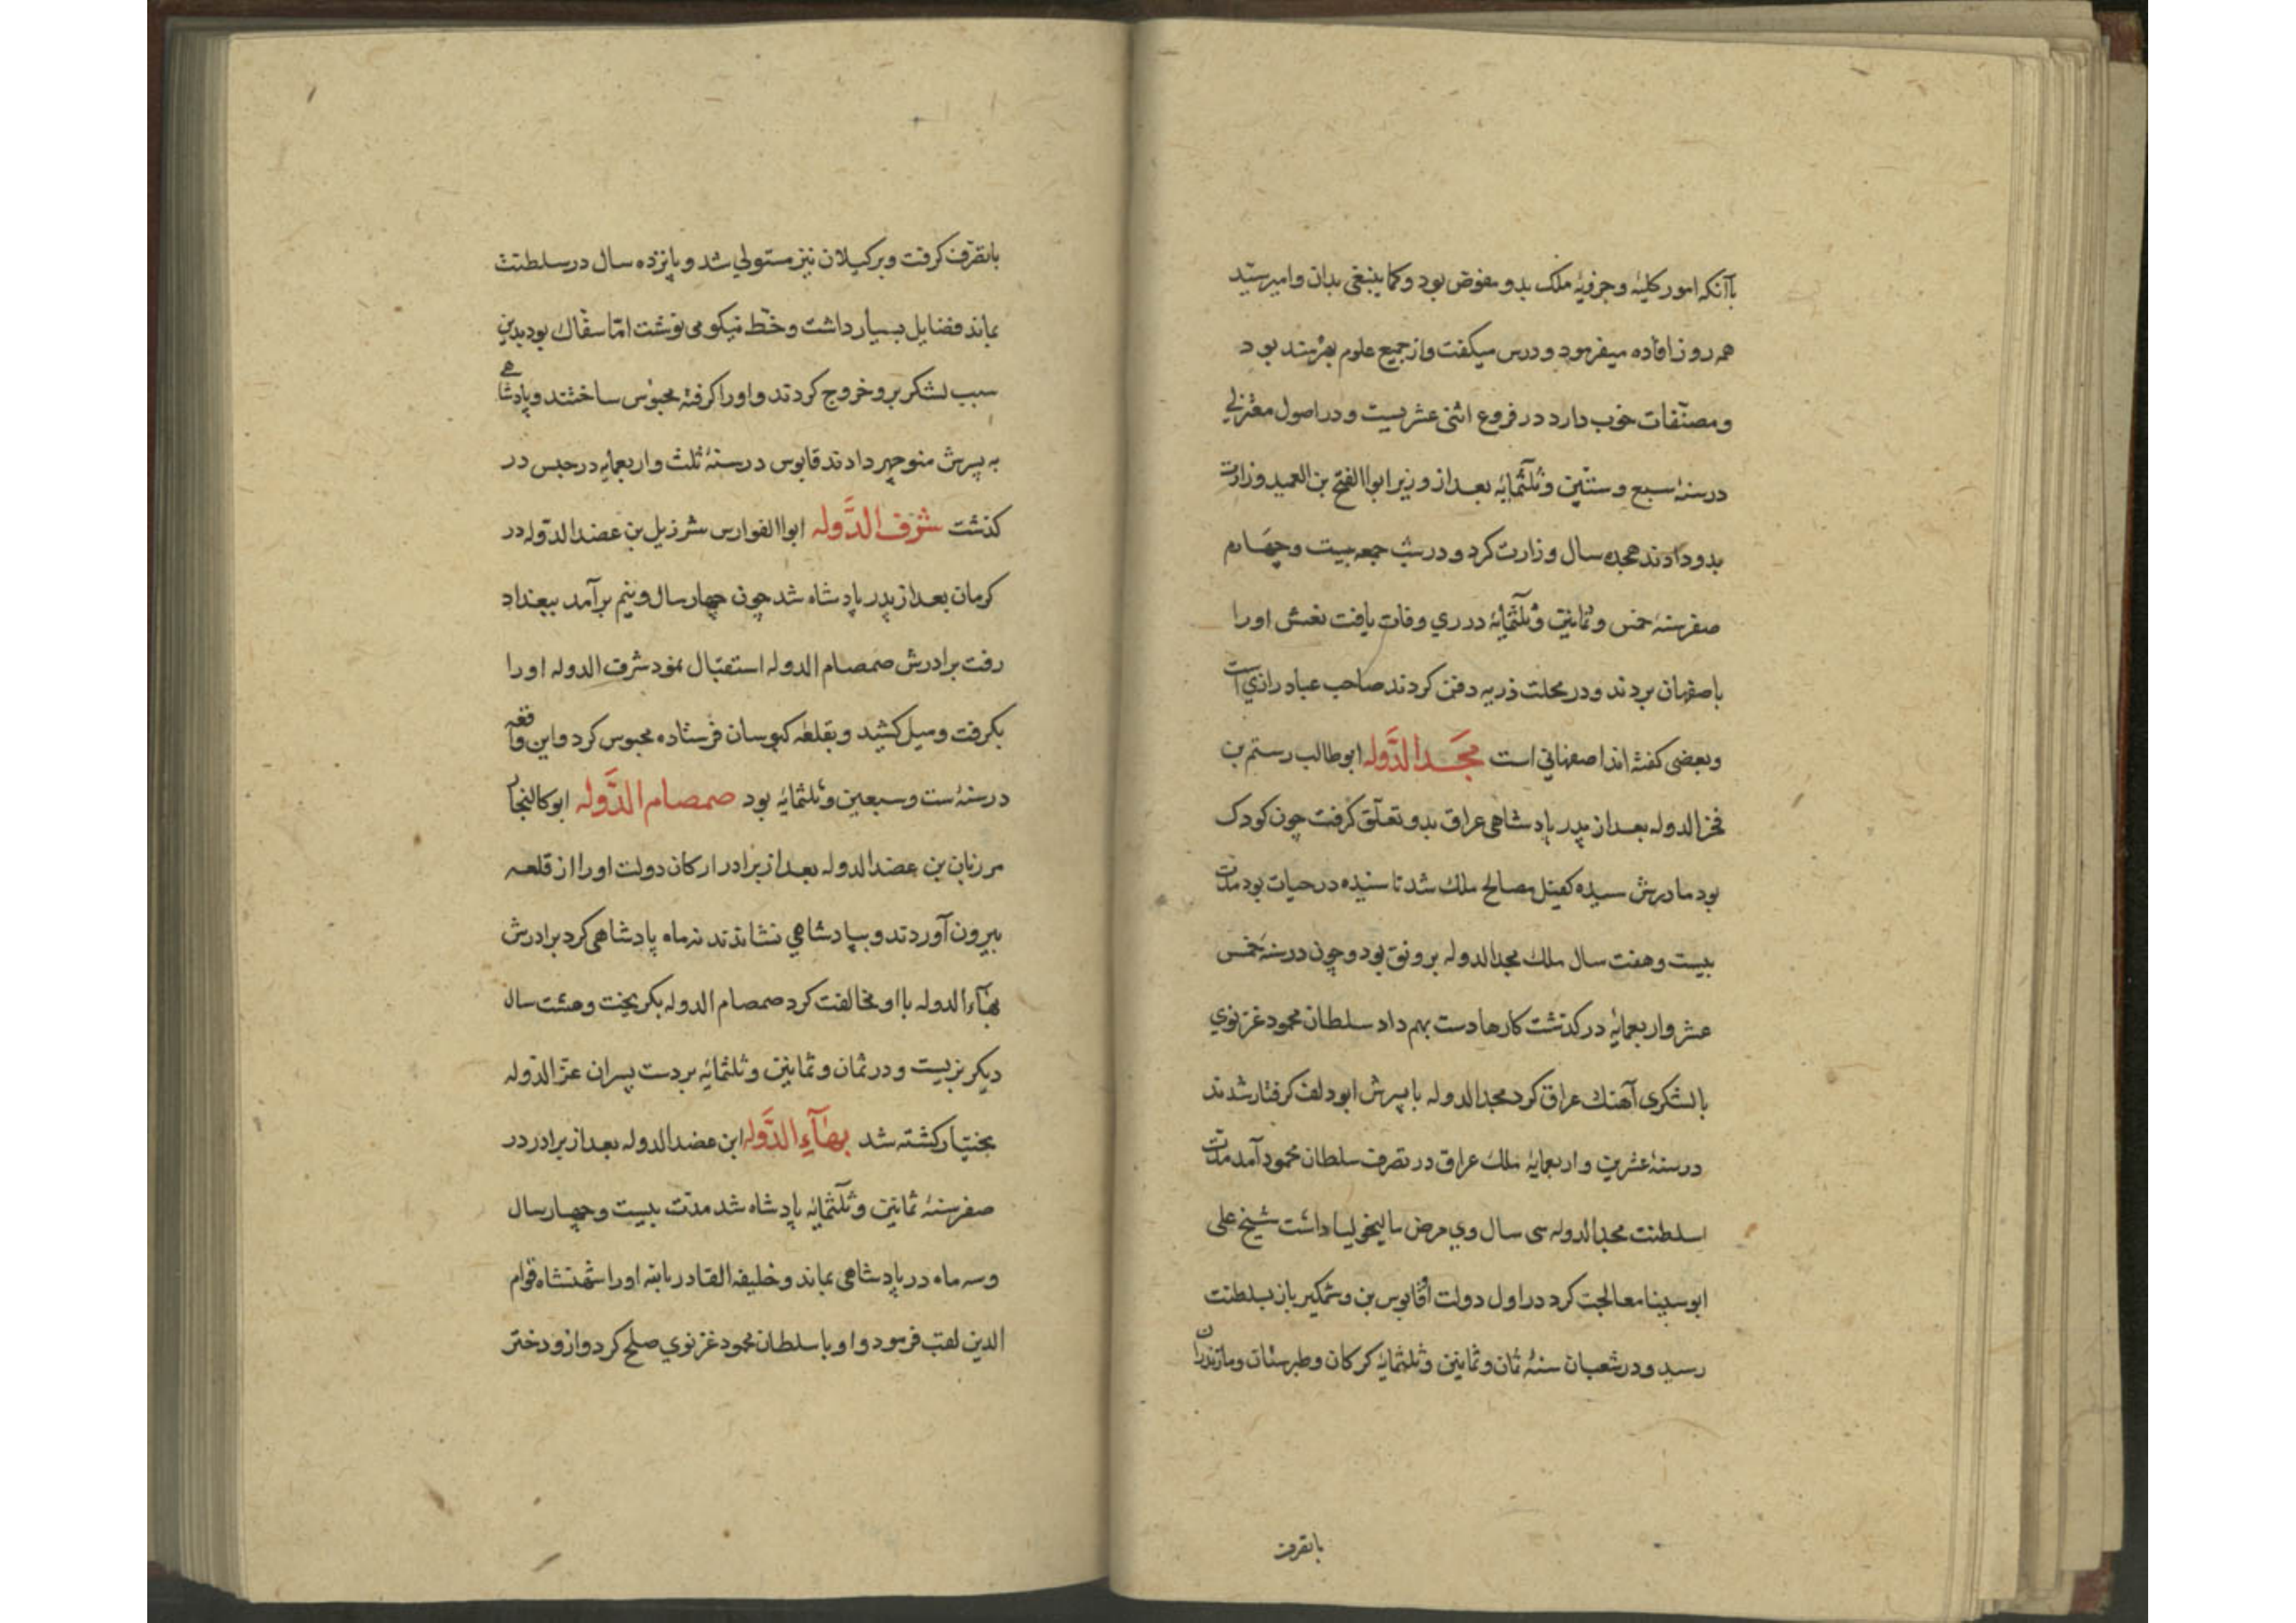 بآنکه امور کلیهٔ و جزویهٔ ملک بدو مفوض بود و کما ینبغی بدان وامیرسید
هر روز افاده میفرمود و درس میکفت و از جمیع علوم بهرمند بود
و مصنّفات خوب دارد در فروع اثنی عشریست و در اصول معتزلی
در سنهٔ سبع و ستّین و ثلثمایهٔ بعد از وزیر ابوا الفتح بن العمید وزارت
بدو دادند هجده سال وزارت کرد و در شب جمعه بیست و چهارم
صفر سنهٔ خمس و ثمانین و ثلثمایهٔ در ری وفات یافت نعش اورا
باصفهان بردند و در محلت دریه دفن کردند صاحب عباد رازی است
و بعضی کفته اند اصفهانی است مجد الدَّوله ابوطالب رستم بن
فخر الدوله بعد از پدر پادشاهی عراق بدو تعلّق کرفت چون کودک
بود مادرش سیده کفیل مصالح ملک شد تا سیده در حیات بود مدت
بیست و هفت سال ملک مجد الدوله برونق بود و چون در سنهٔ خمس
عشر و اربعمایهٔ درکذشت کارها دست بهم داد سلطان محمود غزنوی
با لشکری آهنک عراق کرد مجد الدوله با پسرش ابودلف کرفتار شدند
در سنهٔ عشرین و اربعمایهٔ ملک عراق در تصرف سلطان محمود آمد مدت
سلطنت مجد الدوله سی سال وی مرض مالیخولیا داشت شیخ علی
ابوسینا معالجت کرد در اول دولت او قابوس بن وشمکیر باز بسلطنت
رسید و در شعبان سنهٔ ثمان و ثمانین و ثلثمایهٔ کرکان و طبرستان و مازندران
باتصرف
باتصرف کرفت و بر کیلان نیز مستولی شد و پانزده سال در سلطنت
بماند فضایل بسیار داشت و خطّ نیکو می نوشت امّا سفّاک بود بدین
سبب لشکر برو خروج کردند و اورا کرفته محبوس ساختند و پادشاهی
به پسرش منوچهر دادند قابوس در سنهٔ ثلث و اربعمایه در حبس در
کذشت شرف الدَّوله ابوا الفوارس شرزیل بن عضد الدّوله در
کرمان بعد از پدر پادشاه شد چون چهار سال و نیم برآمد ببغداد
رفت برادرش صمصام الدوله استقبال نمود شرف الدوله اورا
بکرفت و میل کشید و بقلعه کیوسان فرستاده محبوس کرد و این واقعه
در سنهٔ ست و سبعین و ثلثمایهٔ بود صمصام الدَّوله ابوکالنجار
مرزبان بن عضد الدوله بعد از برادر ارکان دولت اورا از قلعه
بیرون آوردند و بپادشاهی نشاندند نه ماه پادشاهی کرد برادرش
بهآء الدوله با او مخالفت کرد صمصام الدوله بکریخت و هشت سال
دیکر بزیست و در ثمان و ثمانین و ثلثمایهٔ بر دست پسران عزّ الدّوله
بختیار کشته شد بهآء الدَّوله ابن عضد الدوله بعد از برادر در
صفر سنهٔ ثمانین و ثلثمایهٔ پادشاه شد مدّت بیست و چهار سال
و سه ماه در پادشاهی بماند و خلیفه القادر بالله اورا شهنشاه قوام
الدین لقب فرمود و او با سلطان محمود غزنوی صلح کرد و ازو دختر